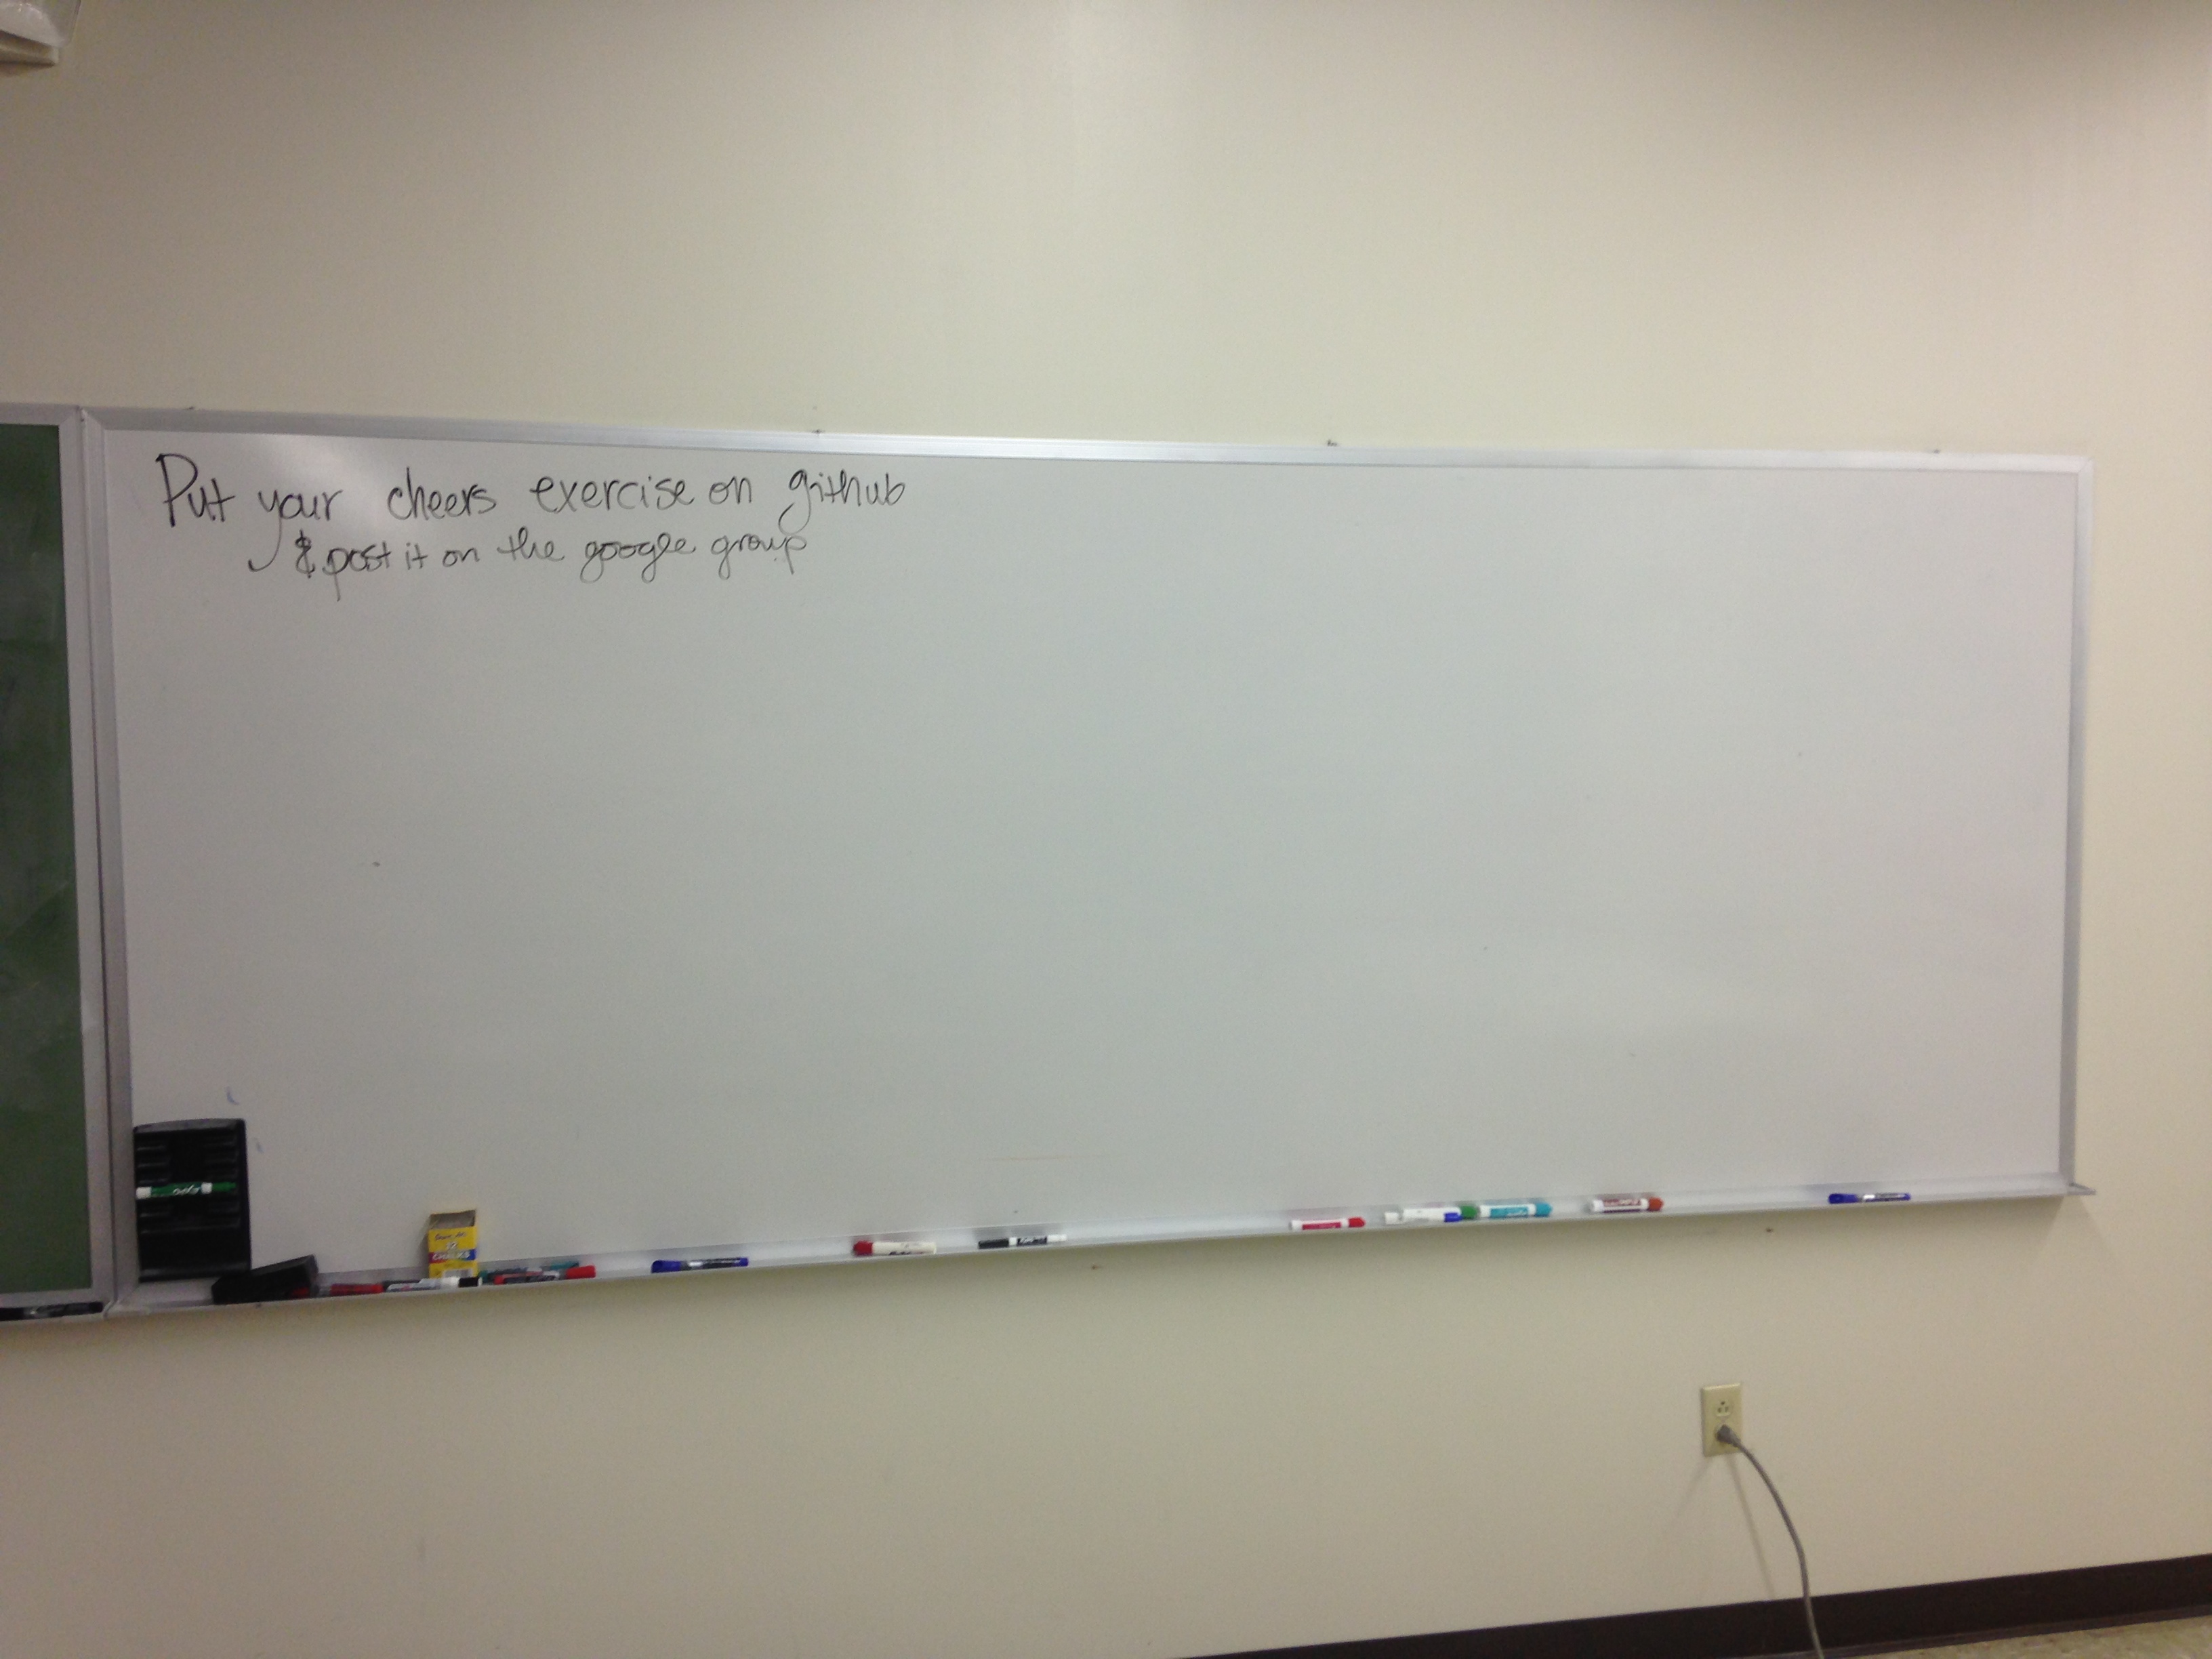 Put your cheers exercise on github
& post it on the google group
EXPO
CHALKS